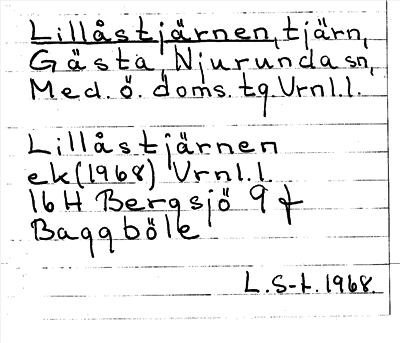 Lillåstjärnen, tjärn,
Gästa, Njurunda sn,
Med. ö. doms. tg Vrnl.l.
Lillåstjärnen
ek(1968) Vrnl.l.
16 H Bergsjö 9 f
Baggböle
L.S-t. 1968.